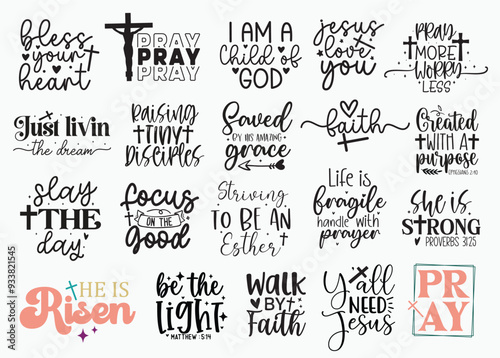 bless
your
heart
PRAY
PRAY
PRAY
I AM A
Child of
GOD
jesus
love
you
PRAY
MORE
WORRY
LESS
Just livin
the dream
RAISING
TINY
Disciples
Saved
BY HIS AMAZING
grace
faith
Created
WITH A
purpose
EPHESIANS 2:10
slay
THE
day
focus
ON THE
good
Striving
TO BE AN
Esther
Life is
fragile
handle with
prayer
she is
STRONG
PROVERBS 31:25
HE IS
Risen
be the
LIGHT
MATTHEW 5:14
WALK
BY
FAITH
Y'all
NEED
Jesus
PR
AY
Adobe Stock | #933821545